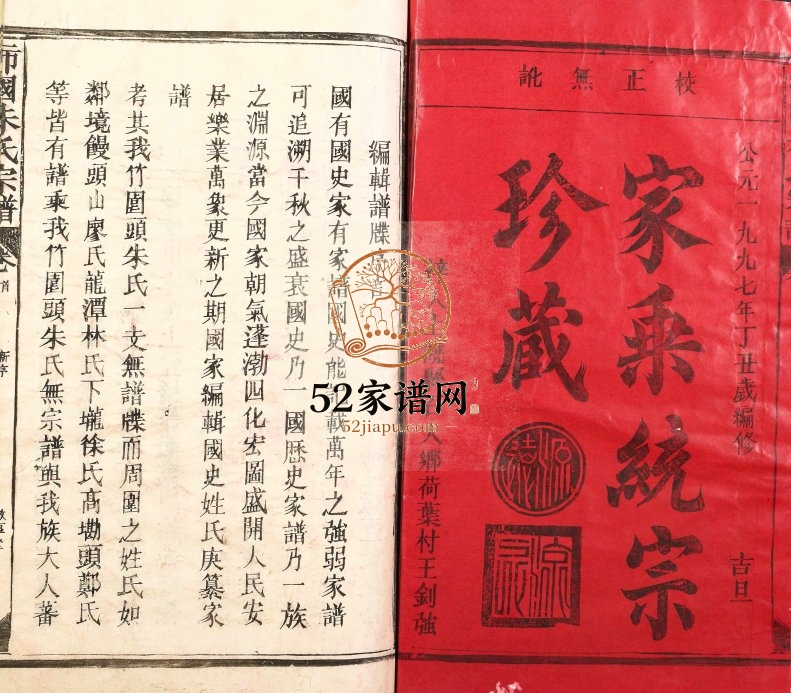 校正無訛
公元一九九七年丁丑歲編修
吉旦
家乘統宗
珍藏
鄉荷葉村王釗強
編輯譜牒
國有國史家有家譜國史能載萬年之強弱家譜
可追溯千秋之盛衰國史乃一國歷史家譜乃一族
之淵源當今國家朝氣蓬渤四化宏圖盛開人民安
居樂業萬象更新之期國家編輯國史姓氏庚纂家
譜
考其我竹圍頭朱氏一支無譜牒而周圍之姓氏如
鄰境饅頭山廖氏龍潭林氏下壠徐氏高塘頭鄭氏
等皆有譜乘我竹圍頭朱氏無宗譜與我族大人蕃
國朱氏宗譜
卷首
52家谱网
52jiapu.com